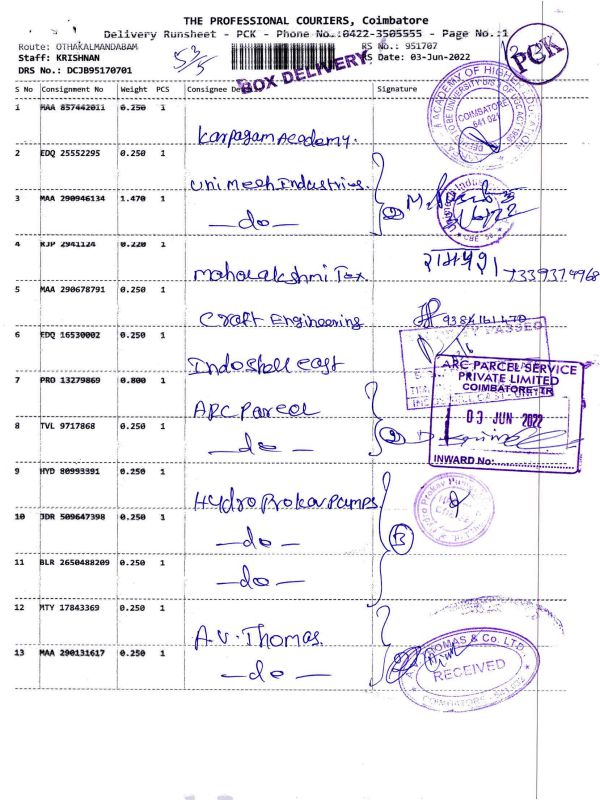 THE PROFESSIONAL COURIERS, Coimbatore
Delivery Runsheet - PCK - Phone No.:0422-3505555 - Page No.:1
Route: OTHAKALMANDABAM
RS No.: 951707
Staff: KRISHNAN
RS Date: 03-Jun-2022
DRS No.: DCJB95170701
BOX DELIVERY
PCK
S No Consignment No Weight PCS Consignee Signature
1 MAA 857442011 0.250 1
Karpagam Academy.
COIMBATORE
641 021
2 EDQ 25552295 0.250 1
Unimech Industries.
3 MAA 290946134 1.470 1
-do-
2
CBE
4 RJP 2941124 0.220 1
Mahalakshmi Tex
7339374968
5 MAA 290678791 0.250 1
Craft Engineering
6 EDQ 16530002 0.250 1
Indoshell cast
PASSED
7 PRO 13279869 0.800 1
ARC Parcel
ARC PARCEL SERVICE
PRIVATE LIMITED
COIMBATORE-TR
03 JUN 2022
INWARD No:
8 TVL 9717868 0.250 1
-do-
2
9 HYD 80993391 0.250 1
Hydro Prokav Pumps
10 JDR 509647398 0.250 1
-do-
3
11 BLR 2650488209 0.250 1
-do-
12 MTY 17843369 0.250 1
A.V. Thomas.
13 MAA 290131617 0.250 1
-do-
2
THOMAS & Co. LTD.
RECEIVED
COIMBATORE